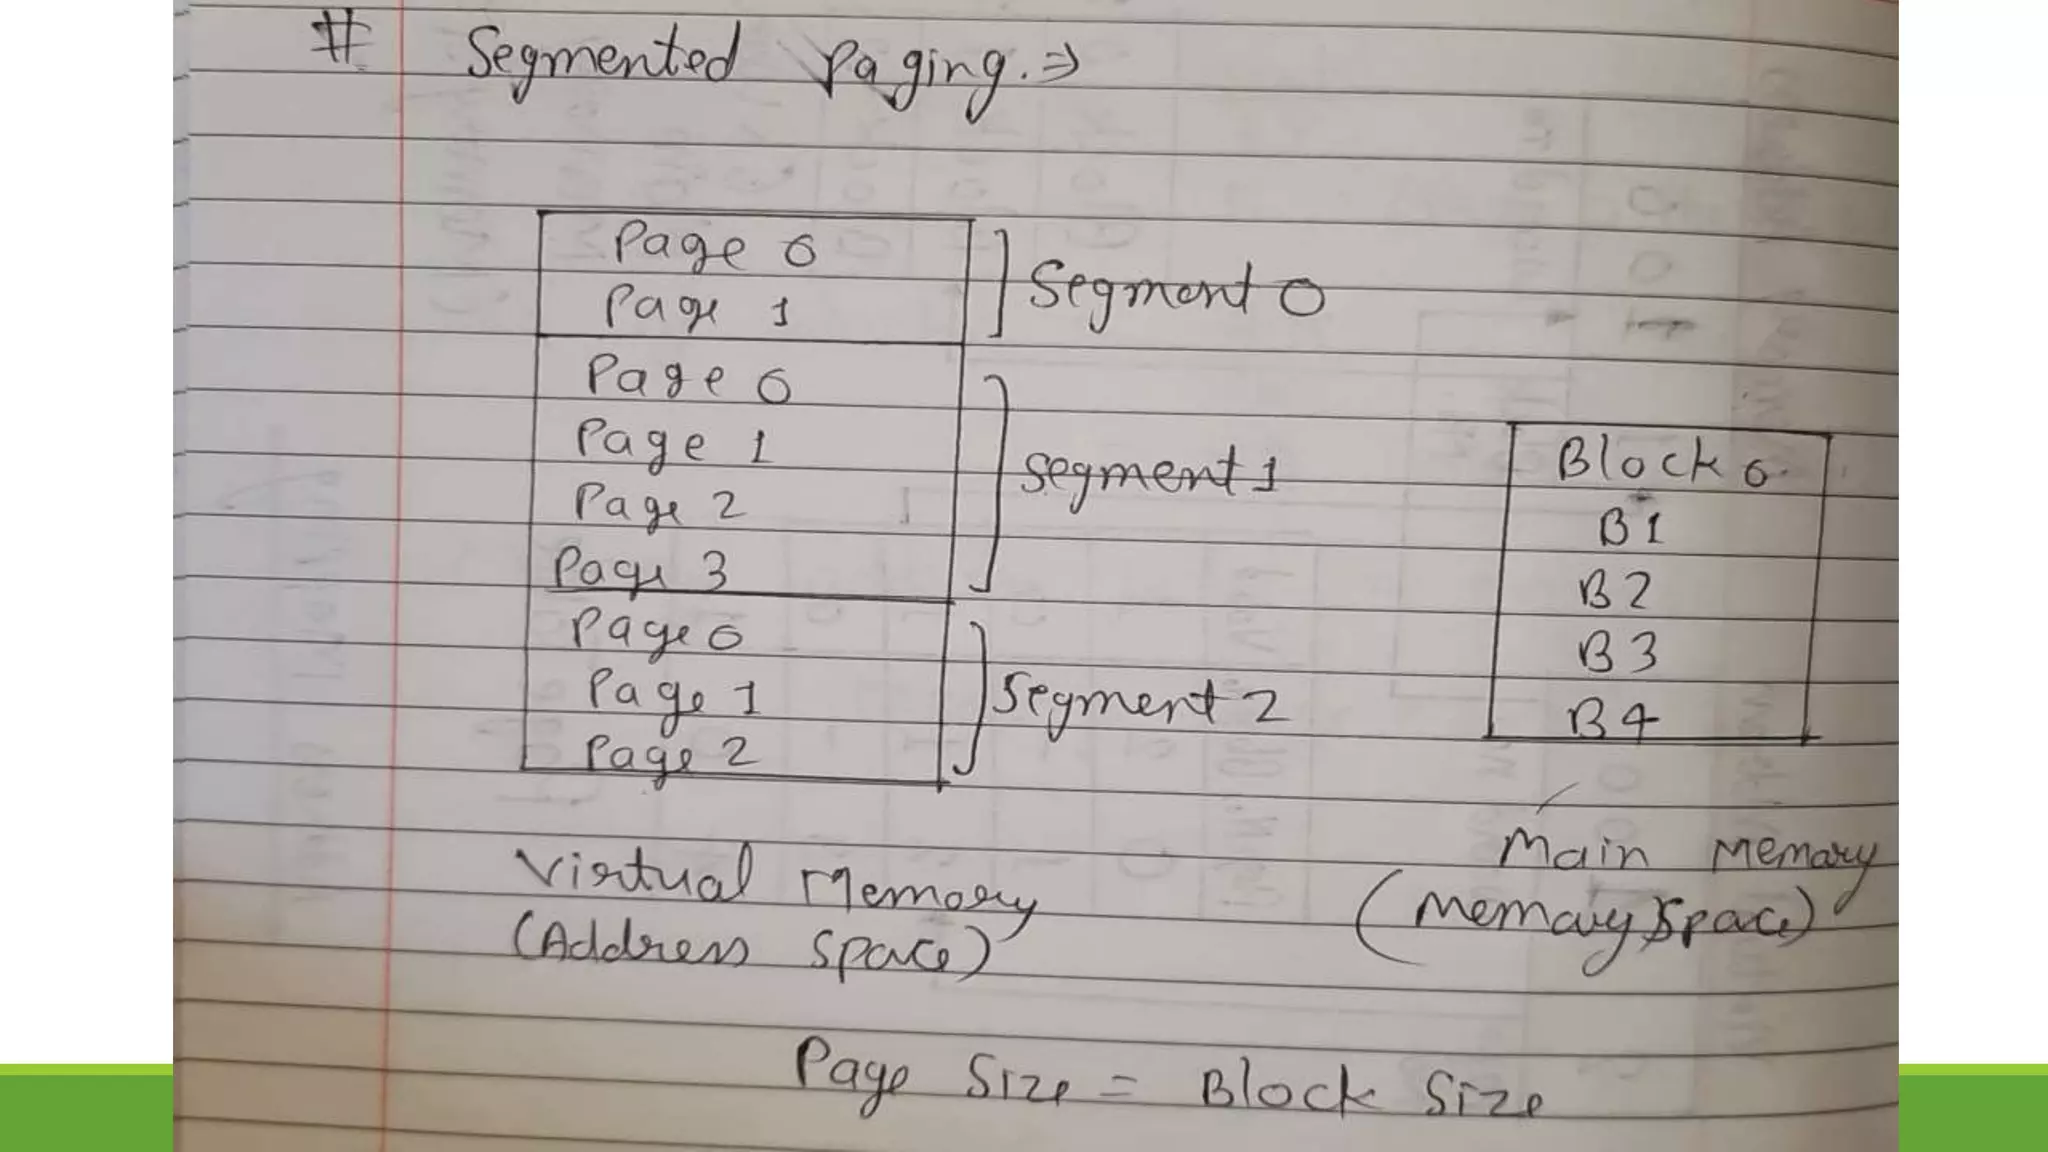 # Segmented Paging. ⇒
Page 0
Page 1
Segment 0
Page 0
Page 1
Page 2
Page 3
Segment 1
Page 0
Page 1
Page 2
Segment 2
Block 0
B1
B2
B3
B4
Virtual Memory
(Address Space)
Main Memory
(Memory Space)
Page Size = Block Size